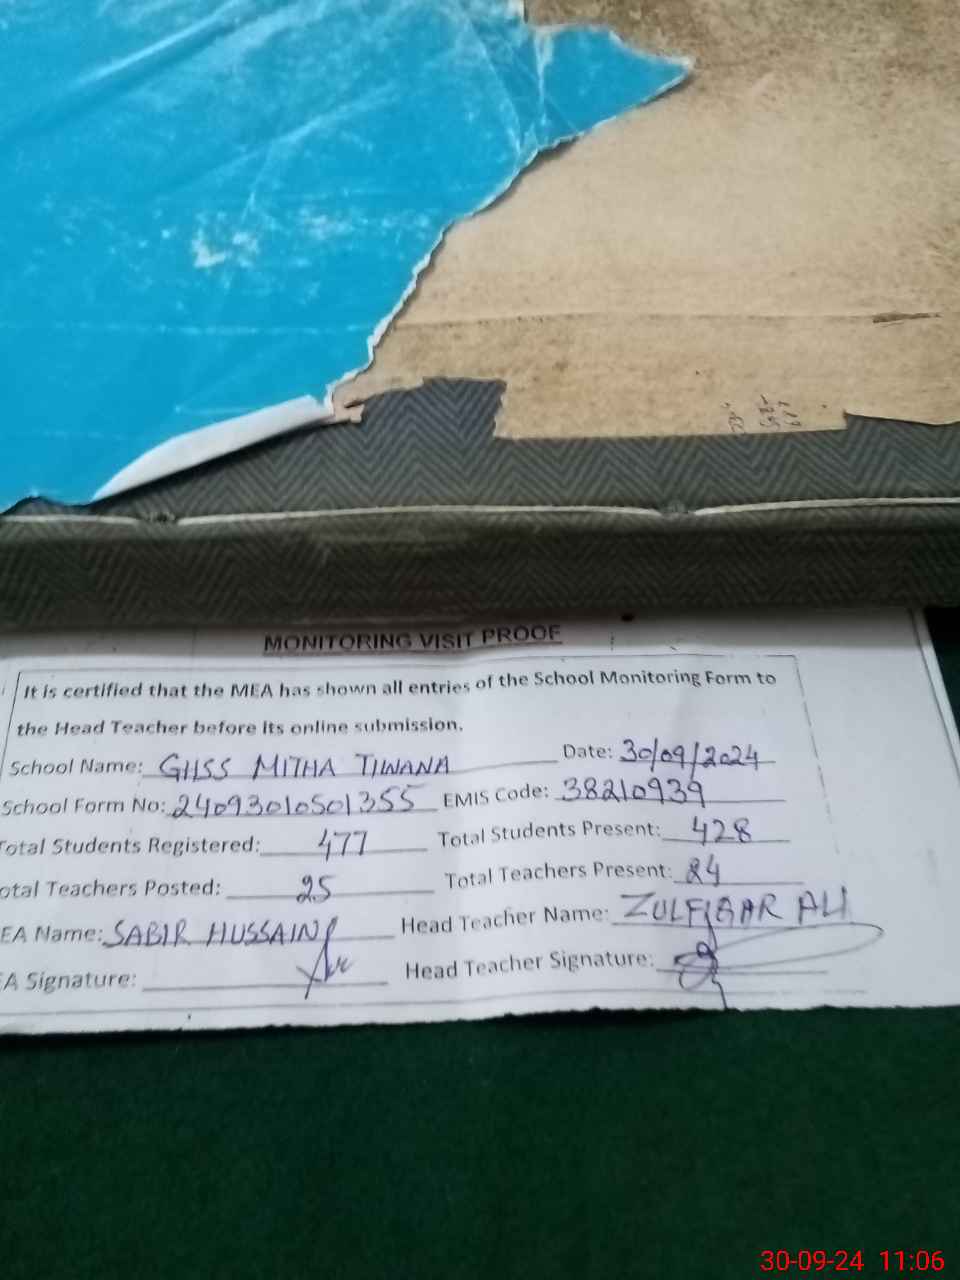 MONITORING VISIT PROOF
It is certified that the MEA has shown all entries of the School Monitoring Form to
the Head Teacher before its online submission.
School Name: GHSS MITHA TIWANA Date: 30/09/2024
School Form No: 24093010501355 EMIS Code: 38210939
Total Students Registered: 477 Total Students Present: 428
otal Teachers Posted: 25 Total Teachers Present: 24
EA Name: SABIR HUSSAIN Head Teacher Name: ZULFIQAR ALI
EA Signature: Head Teacher Signature:
30-09-24 11:06